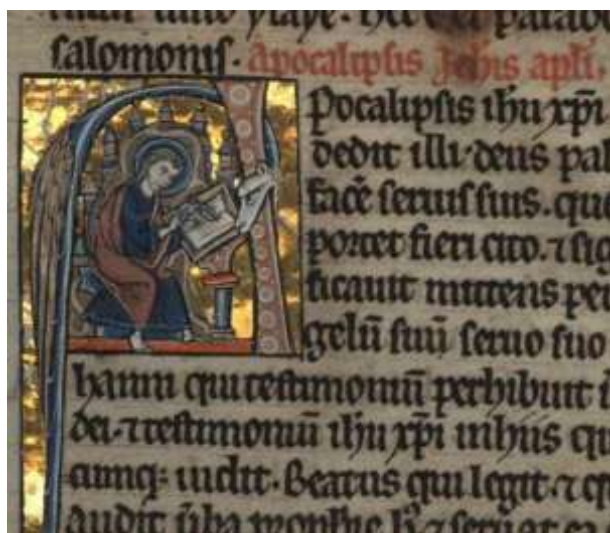 salomonis. Apocalipsis Johis apli.
Apocalipsis ihu xpi
dedit illi deus pal
facē seruis suis. qu
portet fieri cito. ⁊ sig
ficauit mittens per
gelū suū seruo suo
hanni qui testimoniū perhibuit
dei. ⁊ testimoniū ihu xpi in hiis qu
cumq; uidit. Beatus qui legit. ⁊ q
audit ūba